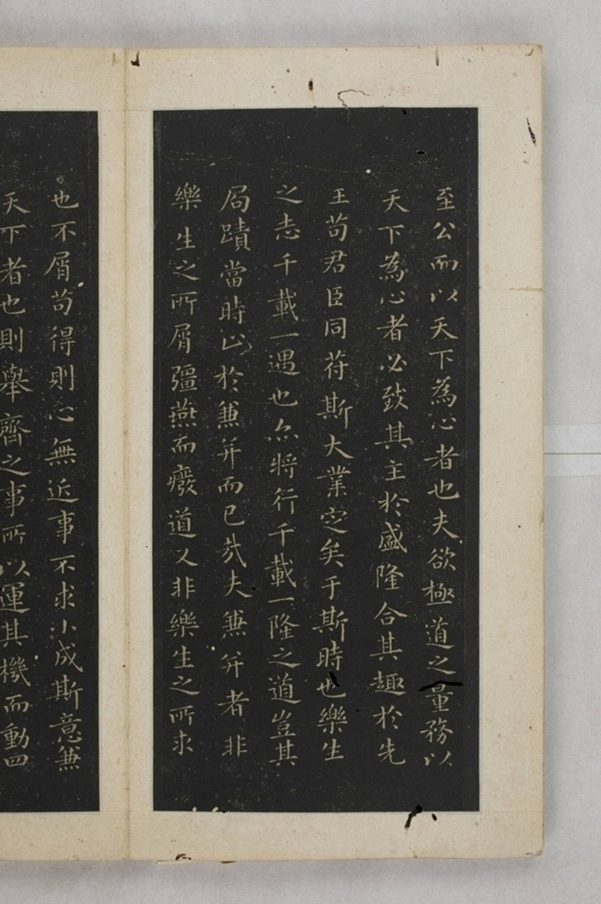 至公而以天下為心者也夫欲極道之量務以
天下為心者必致其主於盛隆合其趣於先
王苟君臣同苻斯大業定矣于斯時也樂生
之志千載一遇也亦將行千載一隆之道豈其
局蹟當時止於兼并而已哉夫兼并者非
樂生之所屑彊燕而癈道又非樂生之所求
也不屑苟得則心無近事不求小成斯意兼
天下者也則舉齊之事所以運其機而動四